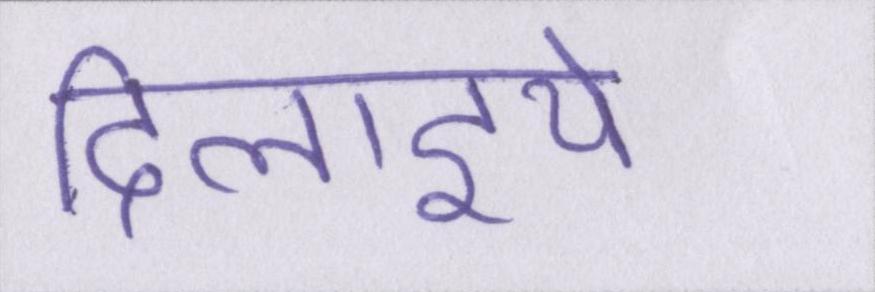 दिलाइये